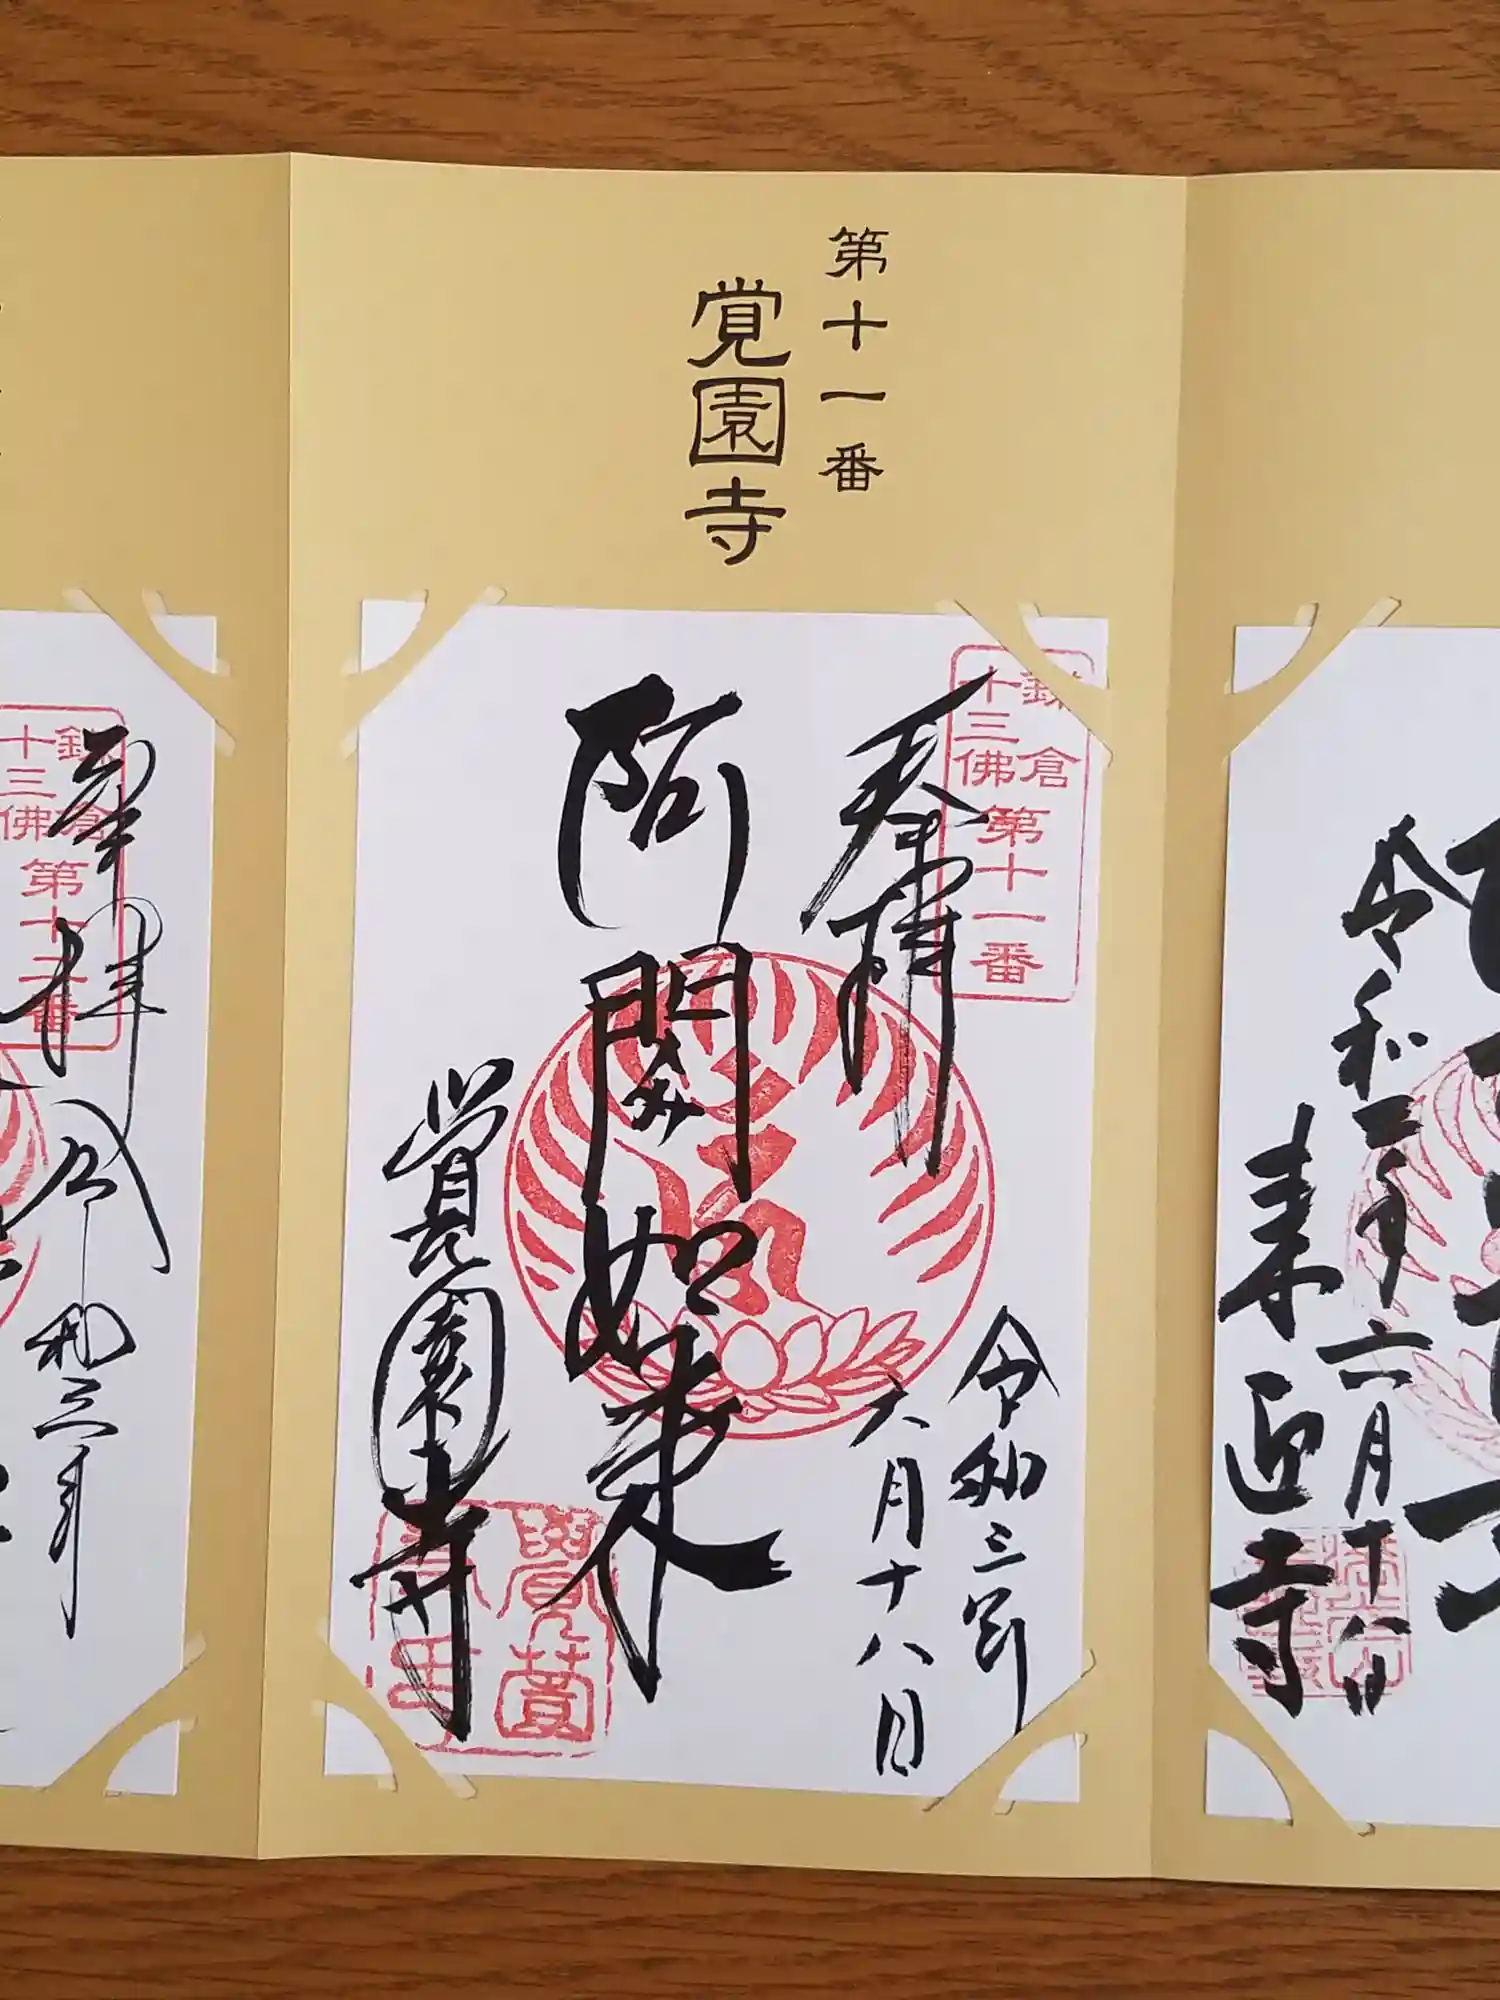 第十一番
覚園寺
鎌倉
十三佛
第十一番
奉拝
令和三年
六月十八日
阿閦如来
覚園寺
令和三年六月十八日
来迎寺
鎌倉
十三佛
第十二番
奉拝
令和三年